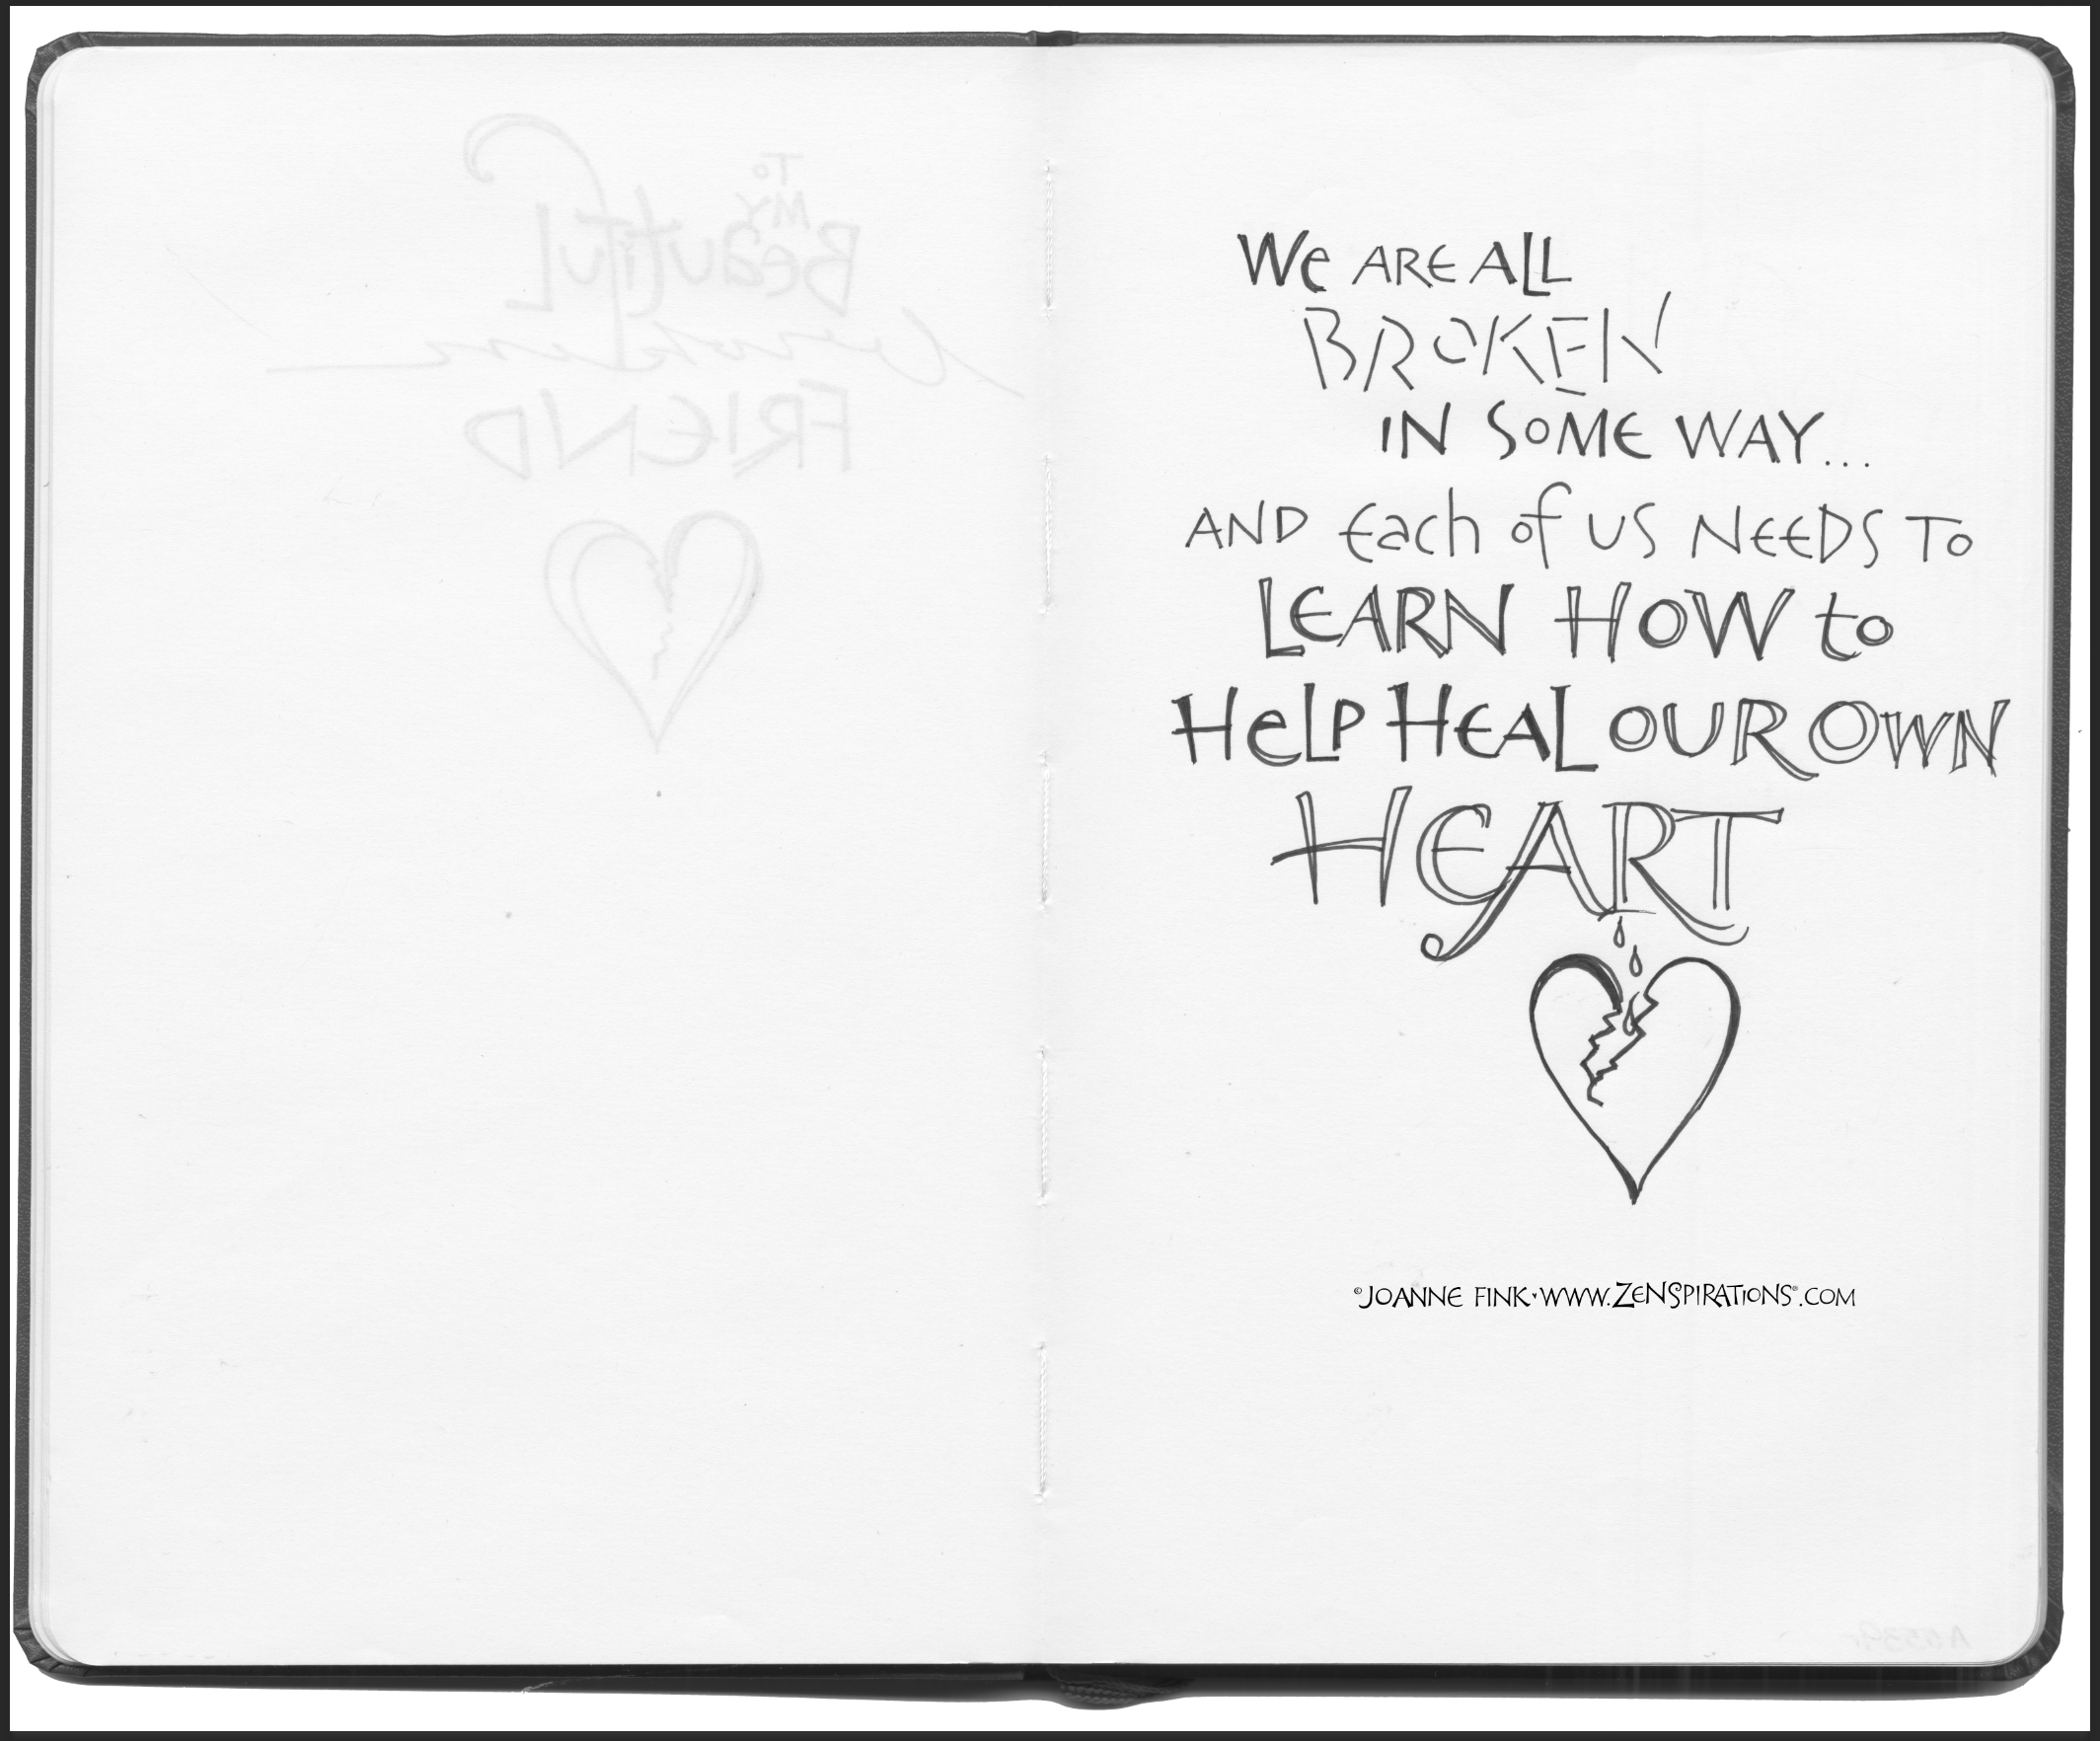 TO
MY
Beautiful
FRIEND
We ARE ALL
BROKEN
IN SOME WAY...
AND Each of US NEEDS TO
LEARN HOW to
HeLP HEAL OUR OWN
HEART
©JOANNE FINK•WWW.ZENSPIRATIONS®.COM